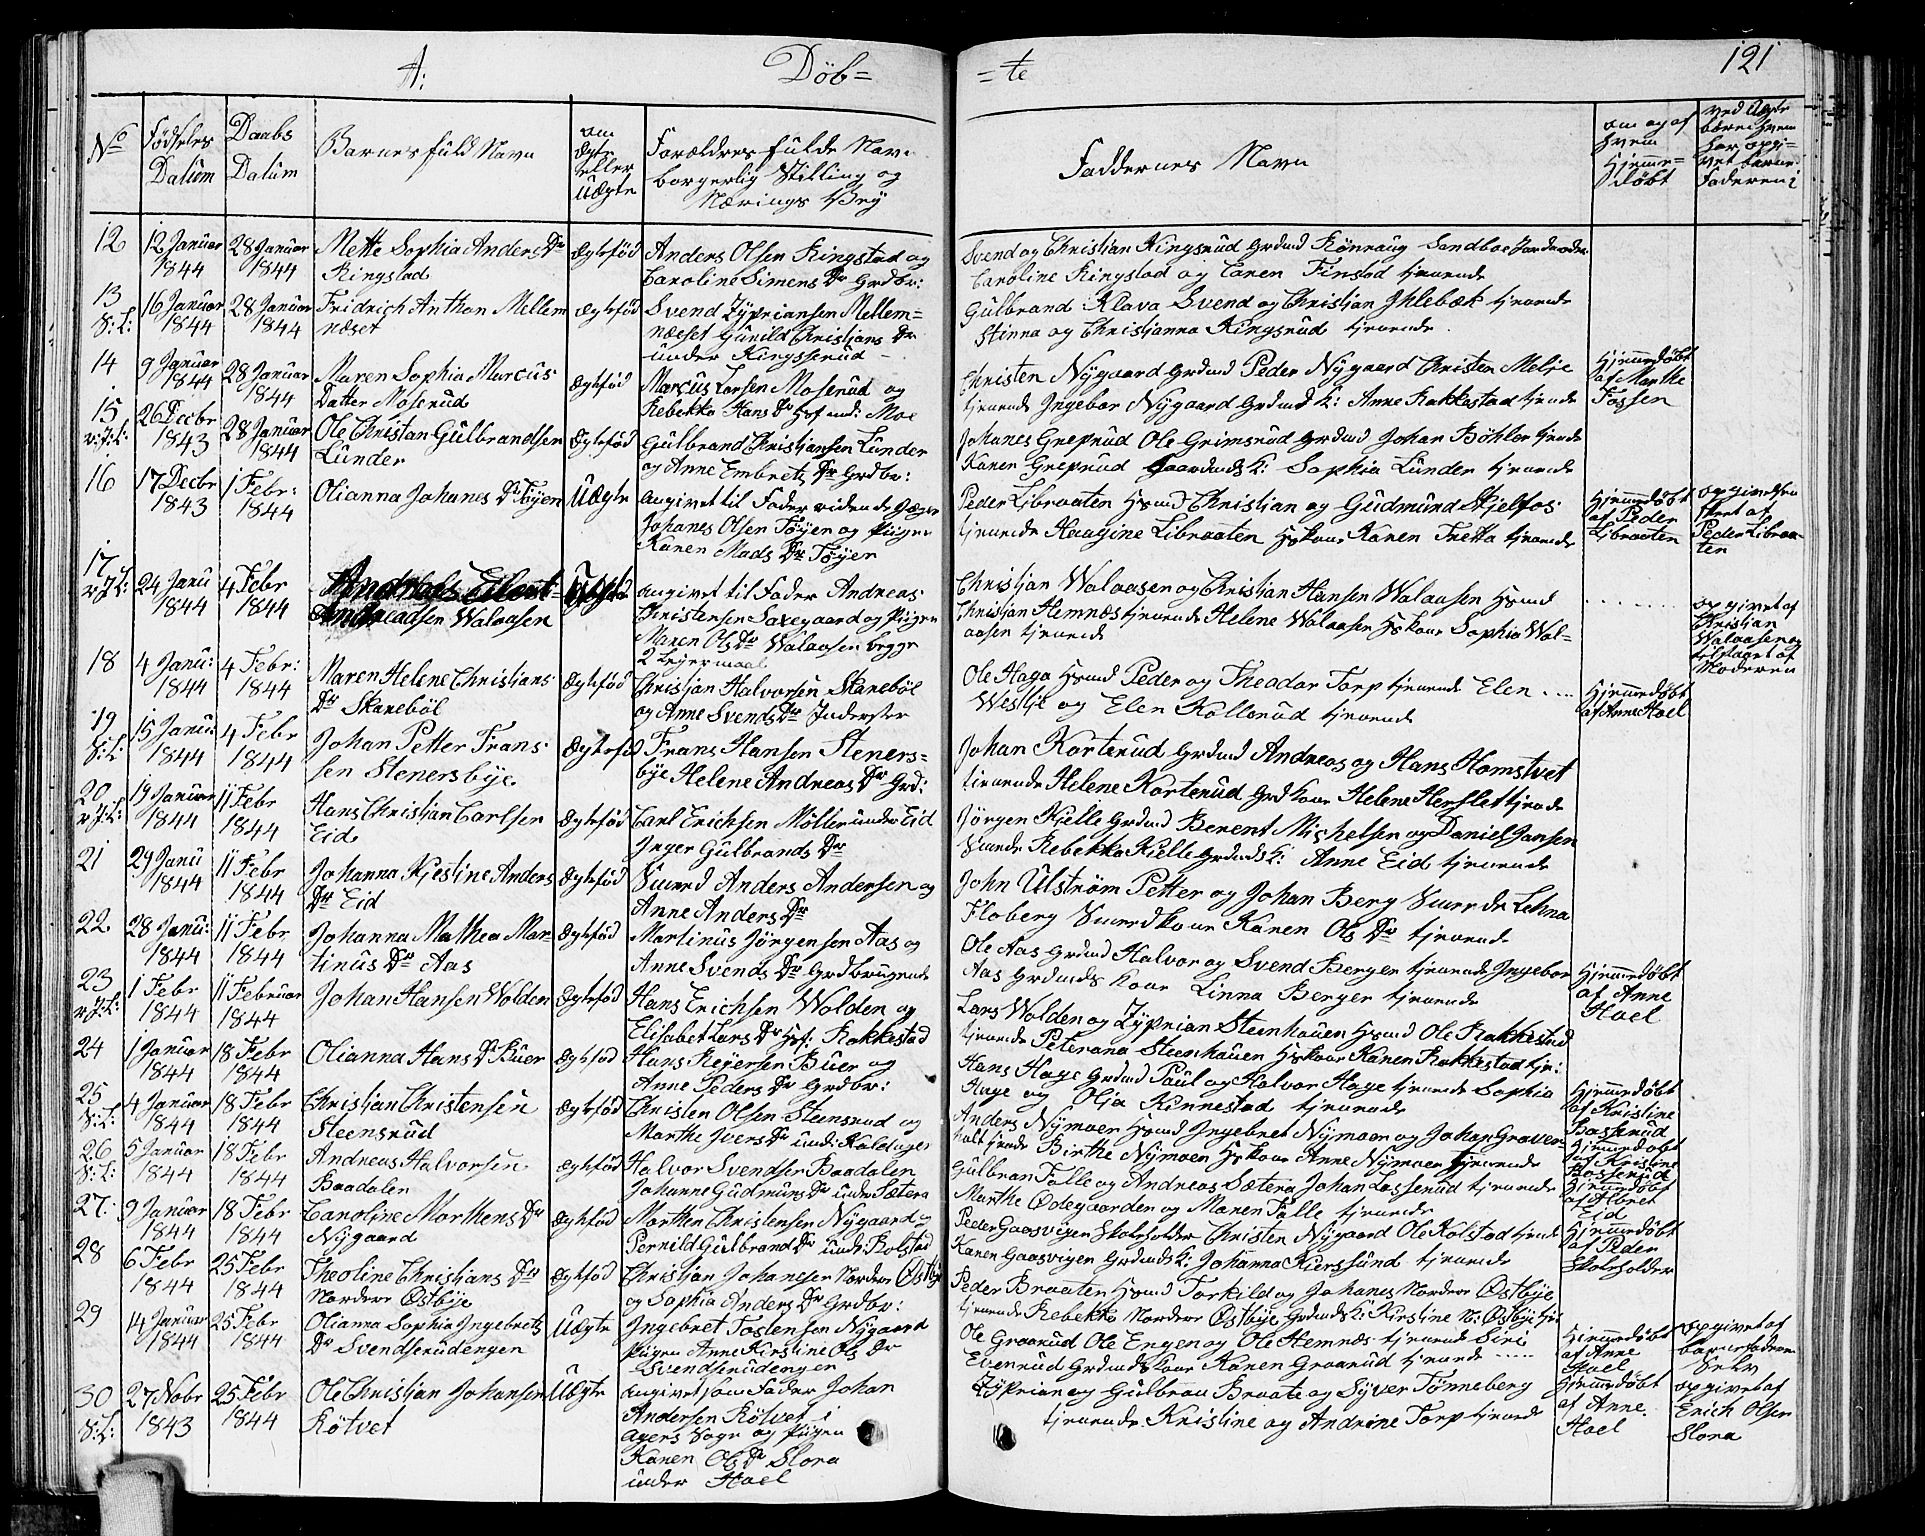 A: Döb= =te 121
No Fødseles Datum Daabs Datum Barnes fuld Navn om Ægte eller Uægte Forældres fulde Navn borgerlig Stilling og Nærings Bry
Faddernes Navn om og af hvem Hjemmedöbt ved Uægte børn hvem har opgivet barnefaderen
12 12 Januar 1844 28 Januar 1844 Mette Sophia Anders Dr Ringstad Ægtefød Anders Olsen Ringstad og Caroline Simens Dr Grdbr:
Svend og Christian Kingsrud Grdmd Rönnaug Sandbæk
Caroline Ringstad og Caren Finstad tjenende
13 S:L: 16 Januar 1844 28 Januar 1844 Fridrich Anthon Mellemnæset Ægtefød Svend Zypriansen Mellem=
næset Gunild Christians Dr under Kingsserud
Gulbrand Klava Svend og Christian Ihlebæk tjenende
Stinna og Christianna Kingsrud tjenende.
14 9 Januar 1844 28 Januar 1844 Maren Sophia Marcus Datter Moserud Ægtefød Marcus Larsen Moserud og
Rebekka Hans Dr Hsf: und: Moe
Christen Nygaard Grdmd Peder Nygaard Christen Melje
tjenende Ingebor Nygaard Grdmd K: Anne Rakkestad tjende
Hjemmedöbt af Marthe Fossen
15 v:J:L: 26 Decbr 1843 28 Januar 1844 Ole Christan Gulbrandsen Lunder Ægtefød Gulbrand Christiansen Lunder
og Anne Embrets Dr Grdbr:
Johanes Greprud Ole Grimsrud Grdmd Johan Böhler tjende
Karen Greprud Gaardmds K: Sophia Lunder tjenende
16 17 Decbr 1843 1 Febr: 1844 Olianna Johanes Dr Töyen Uægte angivet til Fader ridende Jæger
Johanes Olsen Töyen og Pigen
Karen Mads Dr Töyen
Peder Libraaten Hsmd Christian og Gudmund Skjelfos
tjenende Haagine Libraaten Hskone Karen Fretta tjenende
Hjemmedöbt af Peder Libraaten
opgivelsen skeet af Peder Libraaten
17 v:J:L: 24 Janu 1844 4 Febr 1844 Andreas Andreadsen Walaasen angivet til Fader Andreas
Christensen Saxegaard og Pigen
Maren Ols Dr Walaasen begge
2 Lejermaal
Christian Walaasen og Christian Hansen Walaasen Hsmd
Christian Hemnæs tjenende Helene Walaasen Hskone Sophia Wal=
aasen tjenende
opgivet af Christian Walaasen og tilstaaet af Moderen
18 4 Janu: 1844 4 Febr: 1844 Maren Helene Christians Dr Skanebøl Ægtefød Christian Halvorsen Skanebøl
og Anne Svends Dr Inderster
Ole Haga Hsmd Peder og Theodor Torp tjenende Elen ....
Westlje og Elen Kollerud tjenende
Hjemmedöbt af Anne Hoel
19 S:L: 15 Janu: 1844 4 Febr 1844 Johan Petter Fransen Stenersbye Ægtefød Frans Hansen Steners=
bye Helene Andreas Dr Grd:
Johan Korterud Grdmd Andreas og Hans Homstvet
tjenende Helene Korterud Grdkone Helene Herslet tjende
20 v:J:L: 19 Januar 1844 11 Febr 1844 Hans Christian Carlsen Eid Ægtefød Carl Erichsen Møller under Eid
Inger Gulbrands Dr
Jörgen Kjelle Grdmd Berent Michelsen og Daniel Jansen
Svende Rebekka Kjelle Grdmds K: Anne Eid tjenende
21 29 Janu 1844 11 Febr 1844 Johanna Kjestine Anders Dr Eid Ægtefød Svend Anders Andersen og
Anne Anders Dr
John Ulström Petter og Johan Berg Lehna
Floberg Karen Ols Dr tjenende
22 28 Janu: 1844 11 Febr 1844 Johanna Mathea Martinus Dr Aas Ægtefød Martinus Jörgensen Aas og
Anne Svends Dr Grdbrugende
Ole Aas Grdmd Halvor og Svend Berger tjenende Ingebor
Aas Grdmds kone Linna Berger tjenende
Hjemmedöbt af Anne Hoel
23 v:J:L: 1 Febr 1844 11 Februar 1844 Johan Hansen Wolden Ægtefød Hans Erichsen Wolden og
Elisabet Lars Dr Hsf: Rakkestad
Lars Wolden og Zyprian Steenhauen Hsmd Ole Rakkestad
tjenende Peterana Steenhauen Hskone Karen Rakkestad tje:
24 1 Januar 1844 18 Febr 1844 Olianna Hans Dr Buer Ægtefød Hans Rejersen Buer og
Anne Peders Dr Grdbr:
Hans Hage Grdmd Paul og Halvor Hage tjenende Sophia
Hage og Olja Kinnestad tjenende
25 S:L: 4 Januar 1844 18 Febr 1844 Christian Christensen Steensrud Ægtefød Christen Olsen Steensrud og
Marthe Ivers Dr und: Kaldager
Anders Nymoen Hsmd Ingebret Nymoen og Johan Graver
holt tjende Birthe Nymoen Hskone Anne Nymoen tjenende
Hjemmedöbt af Kristine Basserud
26 S:L: 5 Januar 1844 18 Febr 1844 Andreas Halvorsen Baadalen Ægtefød Halvor Svendsen Baadalen
Johanne Gudmunds Dr under Sætera
Gulbran Falle og Andreas Sætera Johan Lasserud tjenende
Marthe Ødegaarden og Maren Falle tjenende
Hjemmedöbt af Kristine Basserud
27: 9 Januar 1844 18 Febr 1844 Caroline Morthens Dr Nygaard Ægtefød Morthen Christensen Nygaard og
Pernild Gulbrands Dr und: Kolstad
Peder Gaasvigen Skoleholder Christen Nygaard Ole Kolstad tjende
Karen Gaasvigen Grdmds K: Johanna Kierssund tjenende
Hjemmedöbt af Abret Eid
28 6 Febr 1844 25 Febr 1844 Theoline Christians Dr Nordere Østbye Ægtefød Christian Johanesen Nordere Østbye
og Sophia Anders Dr Grdbr:
Peder Braaten Hsmd Torkild og Johanes Nordere Østbye
tjenende Rebekka Nordere Østbye Grdmds K: Kirstine N: Østbye tje:
Hjemmedöbt af Peder Skoleholder
29 14 Januar 1844 25 Febr 1844 Olianna Sophia Ingebrets Dr Svendserudengen Uægte Ingebret Tostensen Nygaard
Pigen Anne Kirstine Ols Dr
Svendserudengen
Ole Graarud Ole Engen og Ole Hemnes tjenende Siri
Evenrud Grdmds kone Karen Graarud tjenende .....
Hjemmedöbt af Anne Hoel
opgivet af barnefaderen Selv
30 S:L: 27 Nobr 1843 25 Febr 1844 Ole Christian Johansen Rötvet Uægte angivet som Fader Johan
Andersen Rötvet i
agers Sogn og Pigen
Karen Ols Dr Slora
under Hoel
Zyprian og Gulbran Braate og Syver Tönneberg
tjenende Kristine og Andrine Torp tjenende
Hjemmedöbt af Anne Hoel
opgivet af Erich Olsen Slora